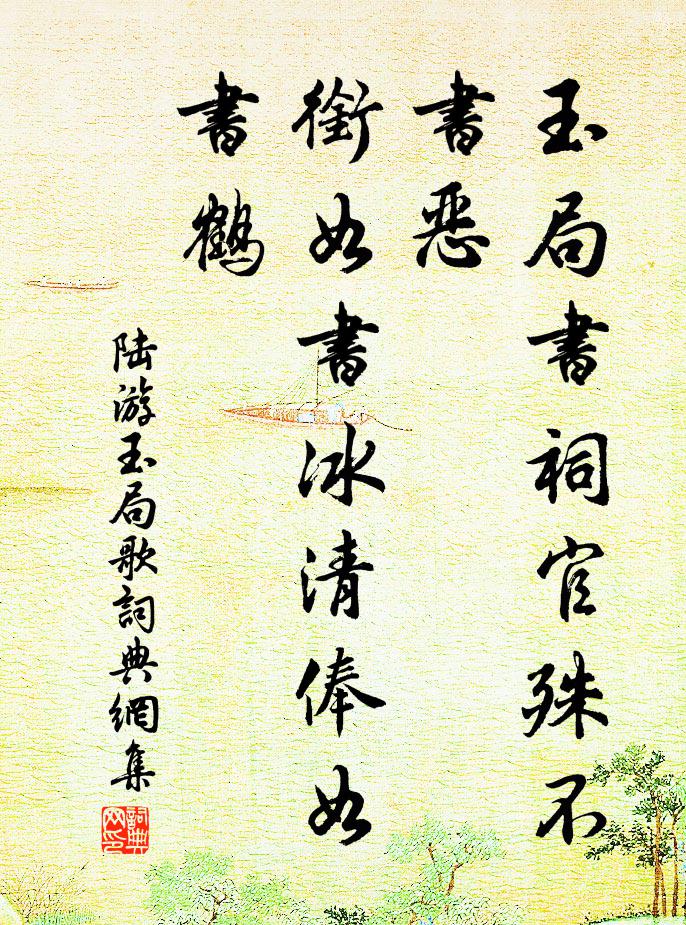 玉局書祠官殊不
書惡
銜如書冰清俸如
書鶴
陸游玉局歌詞典網集
詞典
网印